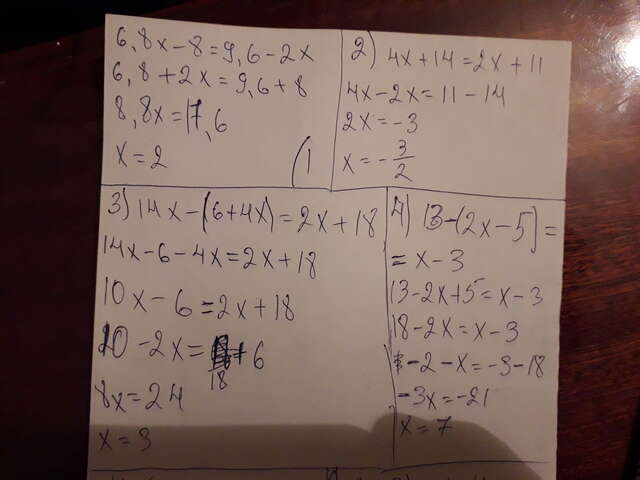 6,8x-8=9,6-2x
6,8+2x=9,6+8
8,8x=17,6
x=2
(1
2) 4x+14=2x+11
4x-2x=11-14
2x=-3
x=-3/2
3) 14x-(6+4x)=2x+18
14x-6-4x=2x+18
10x-6=2x+18
10-2x=18+6
8x=24
x=3
4) 13-(2x-5)=
=x-3
13-2x+5=x-3
18-2x=x-3
-2-x=-3-18
-3x=-21
x=7